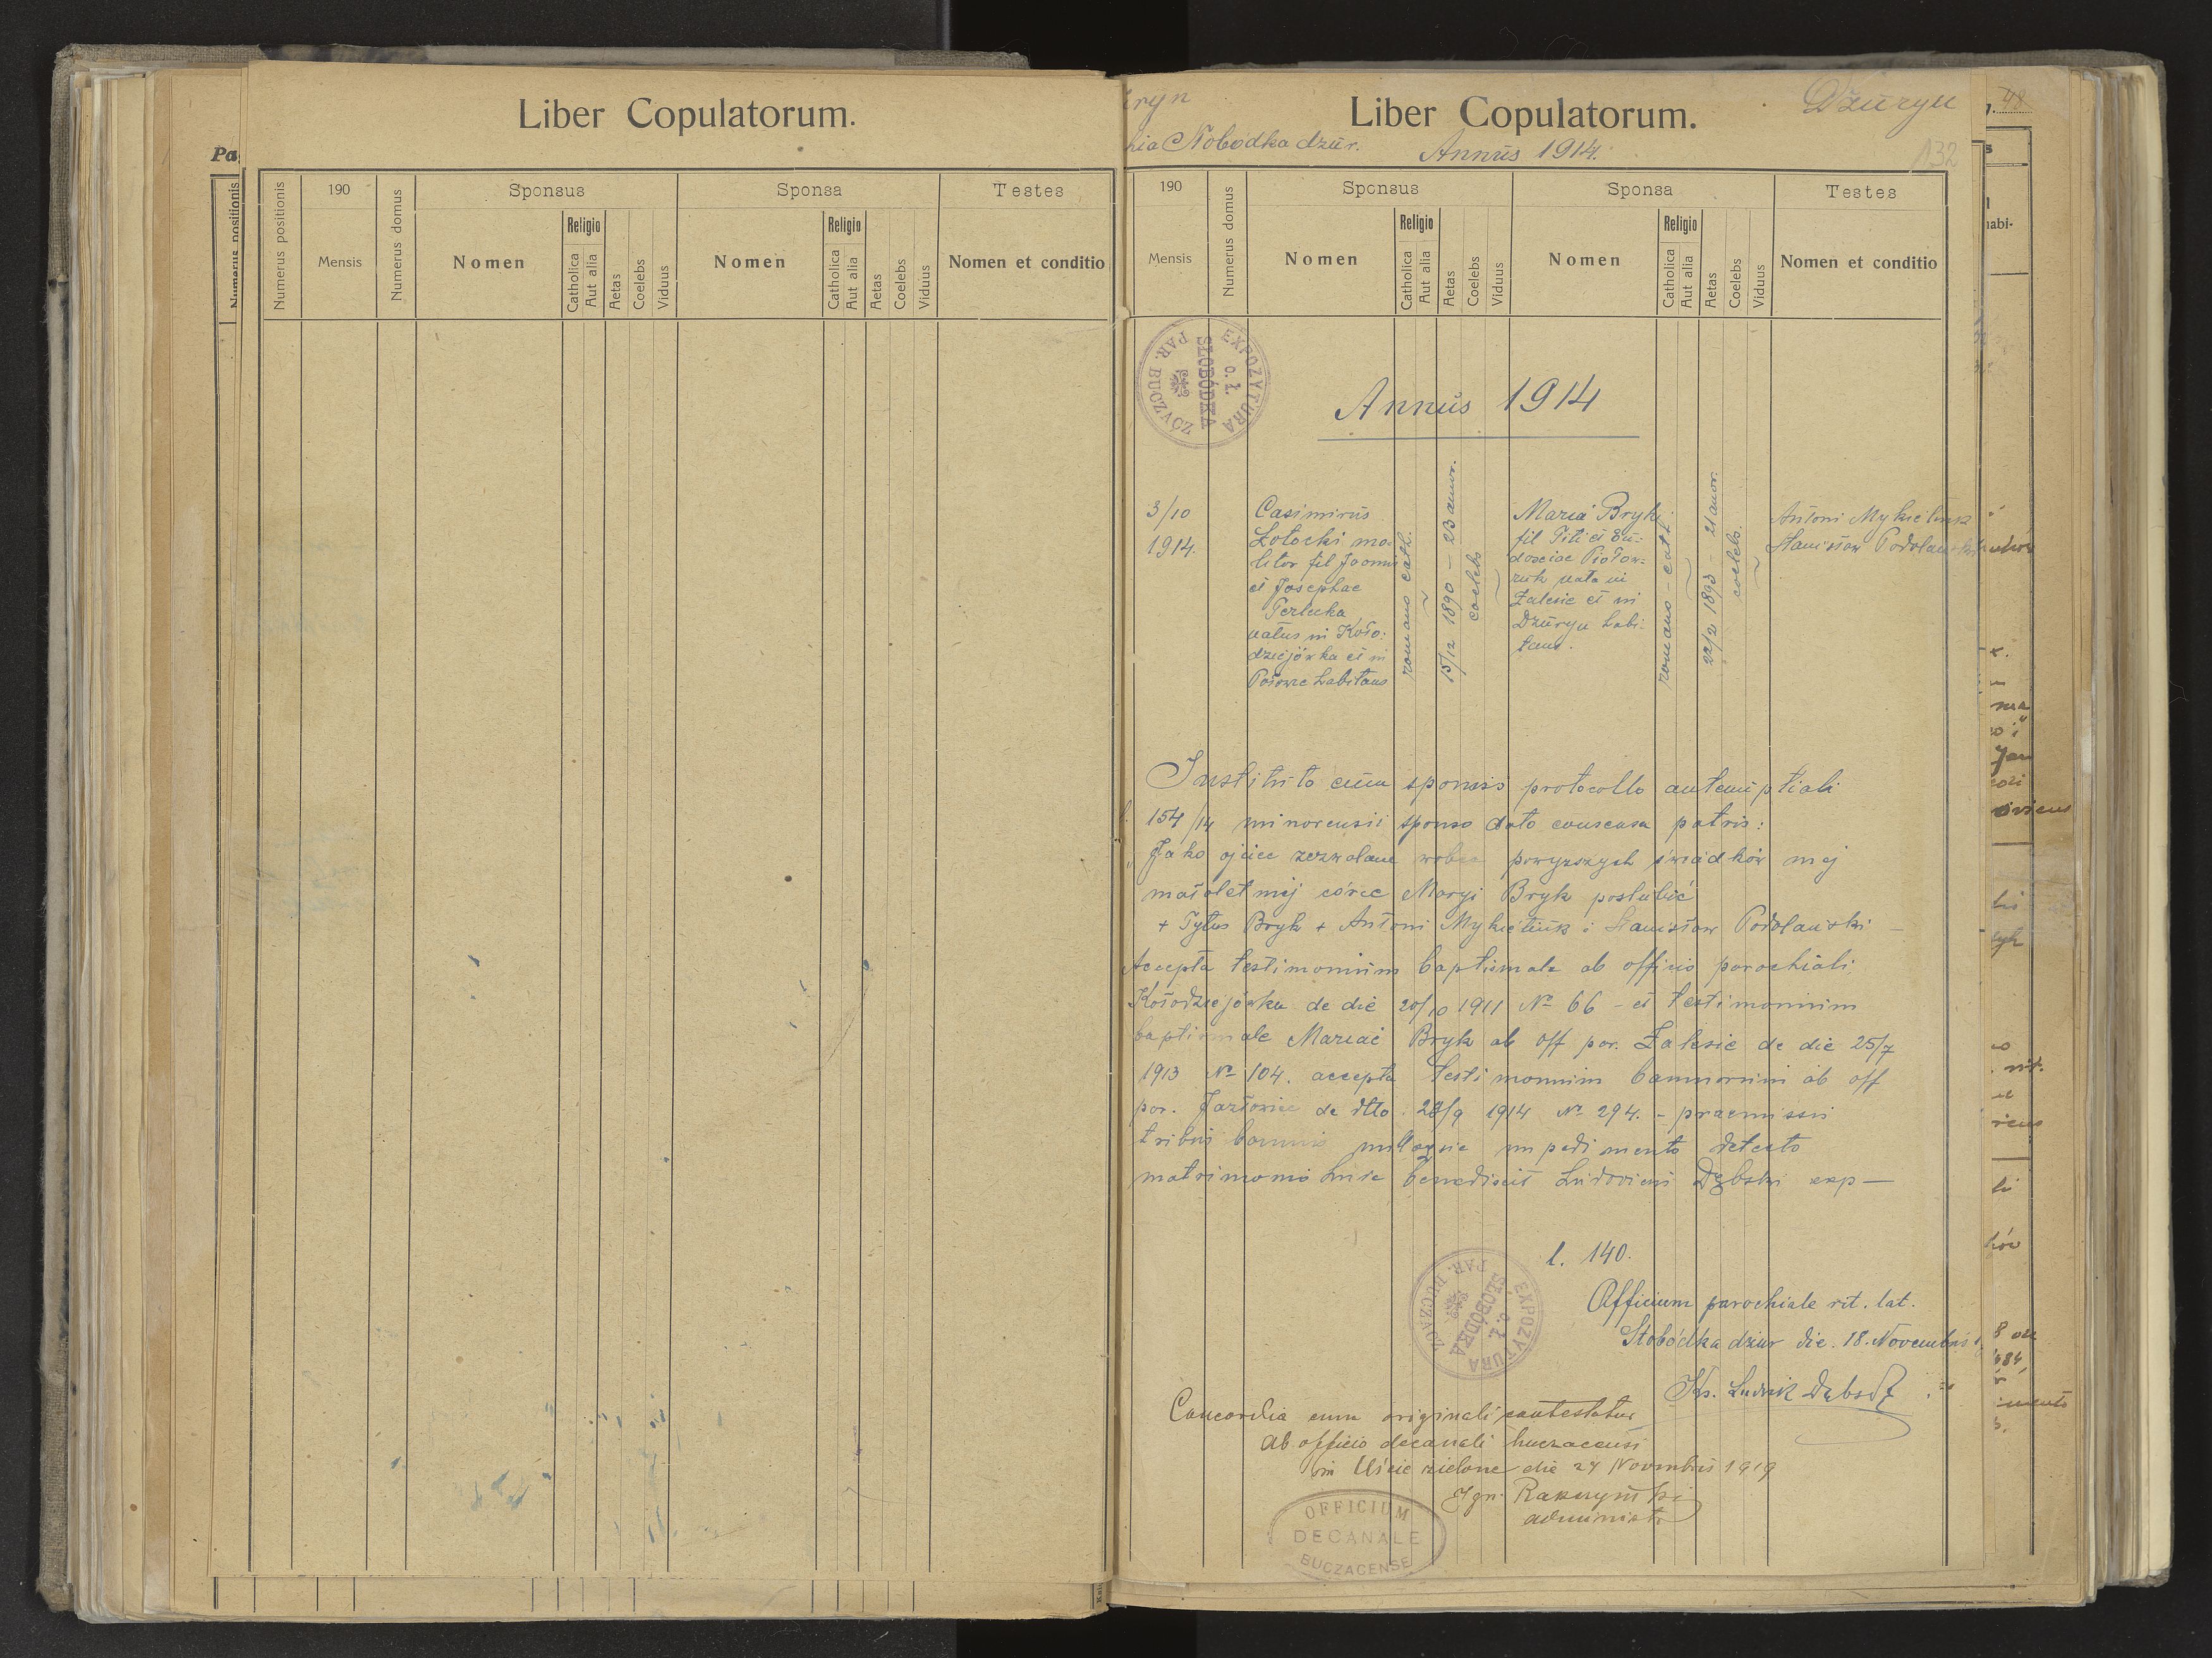 Liber Copulatorum.
Pa
Numerus positionis
Numerus positionis
190
Mensis
Numerus domus
Sponsus
Nomen
Religio
Catholica
Aut alia
Aetas
Coelebs
Viduus
Sponsa
Nomen
Religio
Catholica
Aut alia
Aetas
Coelebs
Viduus
Testes
Nomen et conditio
Liber Copulatorum.
Dżuryn
Słobodka dżur.
Annus 1914.
132
48
190
Mensis
Numerus domus
Sponsus
Nomen
Religio
Catholica
Aut alia
Aetas
Coelebs
Viduus
Sponsa
Nomen
Religio
Catholica
Aut alia
Aetas
Coelebs
Viduus
Testes
Nomen et conditio
EXPOZYTURA
O. Ł.
SŁOBÓDKA
PAR. BUCZACZ
Annus 1914
3/10
1914.
Casimirus
Żołocki mo-
litor fil Joannis
et Josephae
Perlecka
natus in Koło-
dziejówka et in
Potowce habitans
romano cath.
15/12 1890 - 23 annor.
coelebs
Maria Bryk
fil Titi et Eu-
dociae Piotow-
nata in
Zalesie et in
Dżuryn habi-
tans.
romano-cath.
22/2 1893 - 21 annor.
coelebs.
Antoni Mykietiuk
Stanisław Podolański
Instituto cum sponsis protocollo antenuptiali
154/14 minorennii sponso dato consensu patris:
"Jako ojciec zezwalam wobec powyższych świadków mej
małoletniej córce Maryi Bryk poslubić
+ Tytus Bryk + Antoni Mykietiuk i Stanisław Podolański -
Accepta testimonium baptismale ab officio parochiali
Kołodziejówka de die 20/10 1911 № 66 - et testimonium
baptismale Mariae Bryk ab off par. Zalesie de die 25/7
1913 № 104. accepta testimonium bannorum ab off
par. Jazłowiec de dtto 28/9 1914 № 294. - praemissis
tribus bannis nulloque impedimento detecto
matrimonio huic benedixit Ludovicus Dębski exp-
l. 140.
EXPOZYTURA
O. Ł.
SŁOBÓDKA
PAR. BUCZACZ
Officium parochiale rit. lat.
Słobódka dżur die. 18. Novembris
Ks. Ludwik Dębski
Concordia cum originali contestatur
Ab officio decanali buczacensi
in Uście zielone die 24 Novembris 1919
Ign. Rakszyński
administr
OFFICIUM
DECANALE
BUCZACENSE